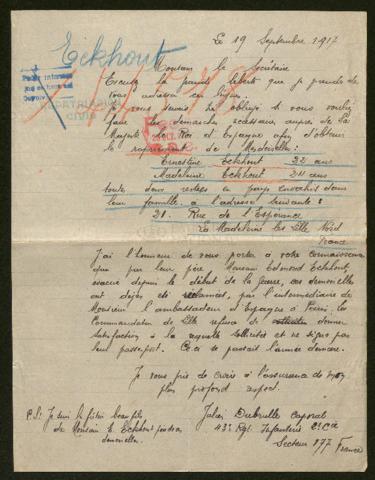 Eckhout
Le 19 Septembre 1917
Monsieur le Secrétaire
Excusez la grande liberté que je prends de
vous adresser ces lignes.
Je vous serais très obligé si vous vouliez
faire les démarches nécessaires auprès de Sa
Majesté le Roi d'Espagne afin d'obtenir
le rapatriement de Mesdemoiselles:
Ernestine Eckhout 22 ans
Madeleine Eckhout 24 ans
toutes deux restées en pays envahis dans
leur famille à l'adresse suivante:
21. Rue de l'Espérance
La Madeleine les Lille Nord
France
J'ai l'honneur de vous porter à votre connaissance
que par leur père Monsieur Edmond Eckhout,
évacué depuis le début de la guerre, ces demoiselles
ont déjà été réclamées, par l'intermédiaire de
Monsieur l'ambassadeur d'Espagne à Paris. Les
Commandatur de Lille refusa de donner
satisfaction à la requête sollicitée et ne signa pas
leur passeport. Ceci se passait l'année dernière.
Je vous prie de croire à l'assurance de mon
plus profond respect.
Jules Dubrulle Caporal
43e Rgt Infanterie 2e Cie
Secteur 177 France
P.S: Je suis le futur beau fils
de Monsieur E. Eckhout père des
demoiselles.